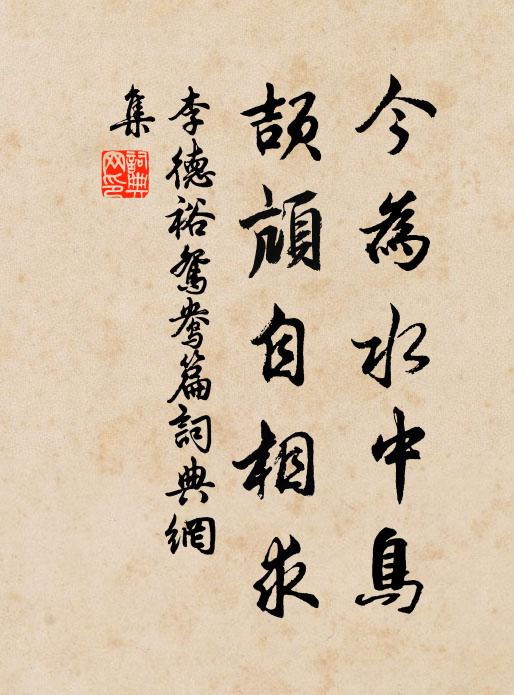 今為水中鳥
頡頏自相求
李德裕鴛鴦篇詞典網
集
詞典
網印